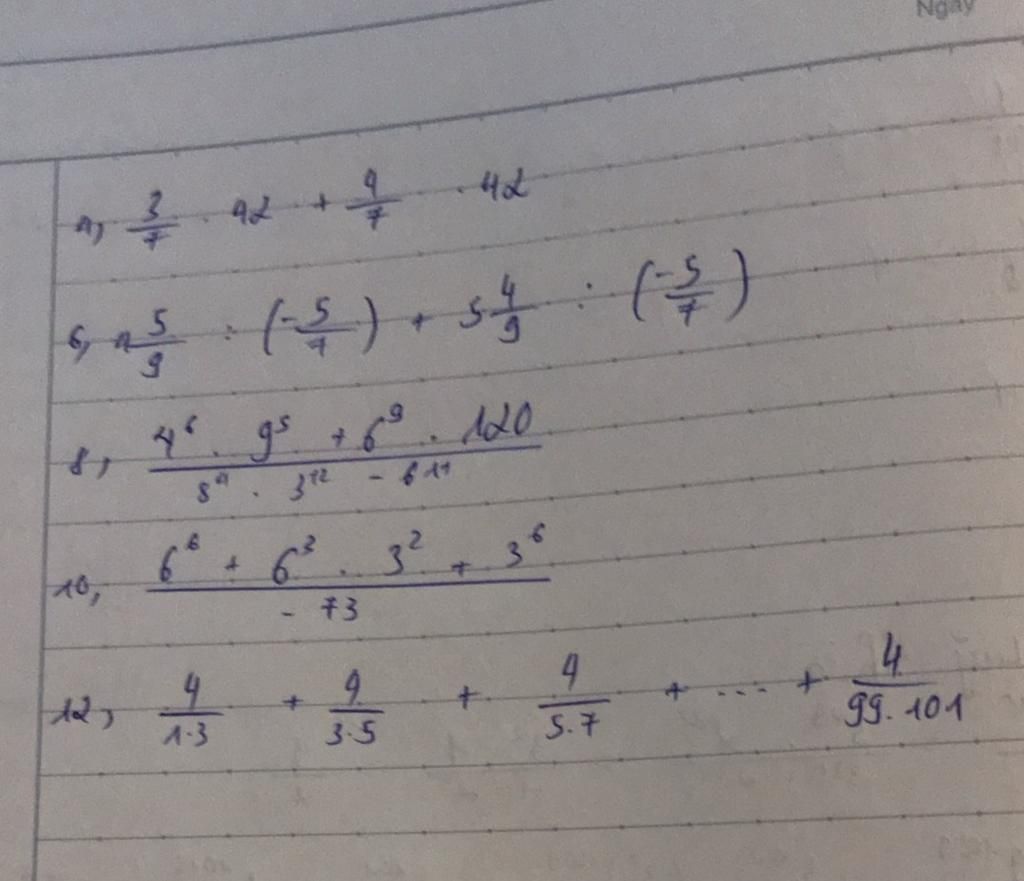 Ngày
4, 3/7 . 42 + 4/7 . 42
6, 1 5/9 : (-5/7) + 5 4/9 : (-5/7)
8, (4^6 . 9^5 + 6^9 . 120) / (8^4 . 3^12 - 6^11)
10, (6^6 + 6^3 . 3^2 + 3^6) / (-73)
12, 4/(1.3) + 4/(3.5) + 4/(5.7) + ... + 4/(99.101)